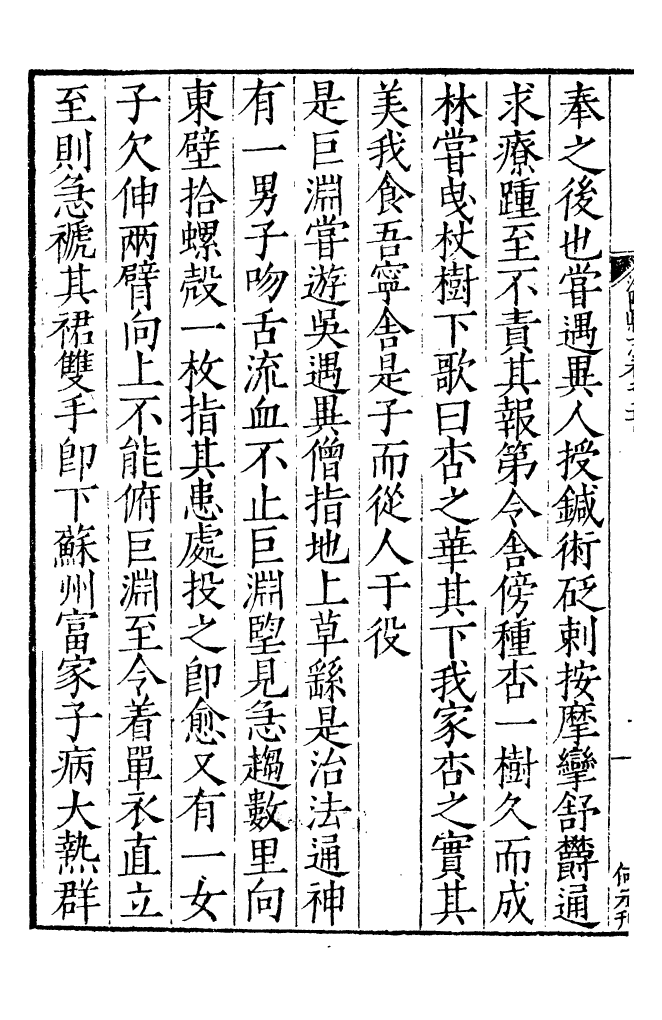 奉之後也嘗遇異人授鍼術砭刺按摩攣舒欝通
求療踵至不責其報第令舍傍種杏一樹久而成
林嘗曳杖樹下歌曰杏之華其下我家杏之實其
美我食吾寧舍是子而從人于役
是巨淵嘗遊吳遇異僧指地上草繇是治法通神
有一男子吻舌流血不止巨淵望見急趨數里向
東壁拾螺殼一枚指其患處投之卽愈又有一女
子欠伸兩臂向上不能俯巨淵至令着單衣直立
至則急褫其裙雙手卽下蘇州富家子病大熱群
一
何元刊